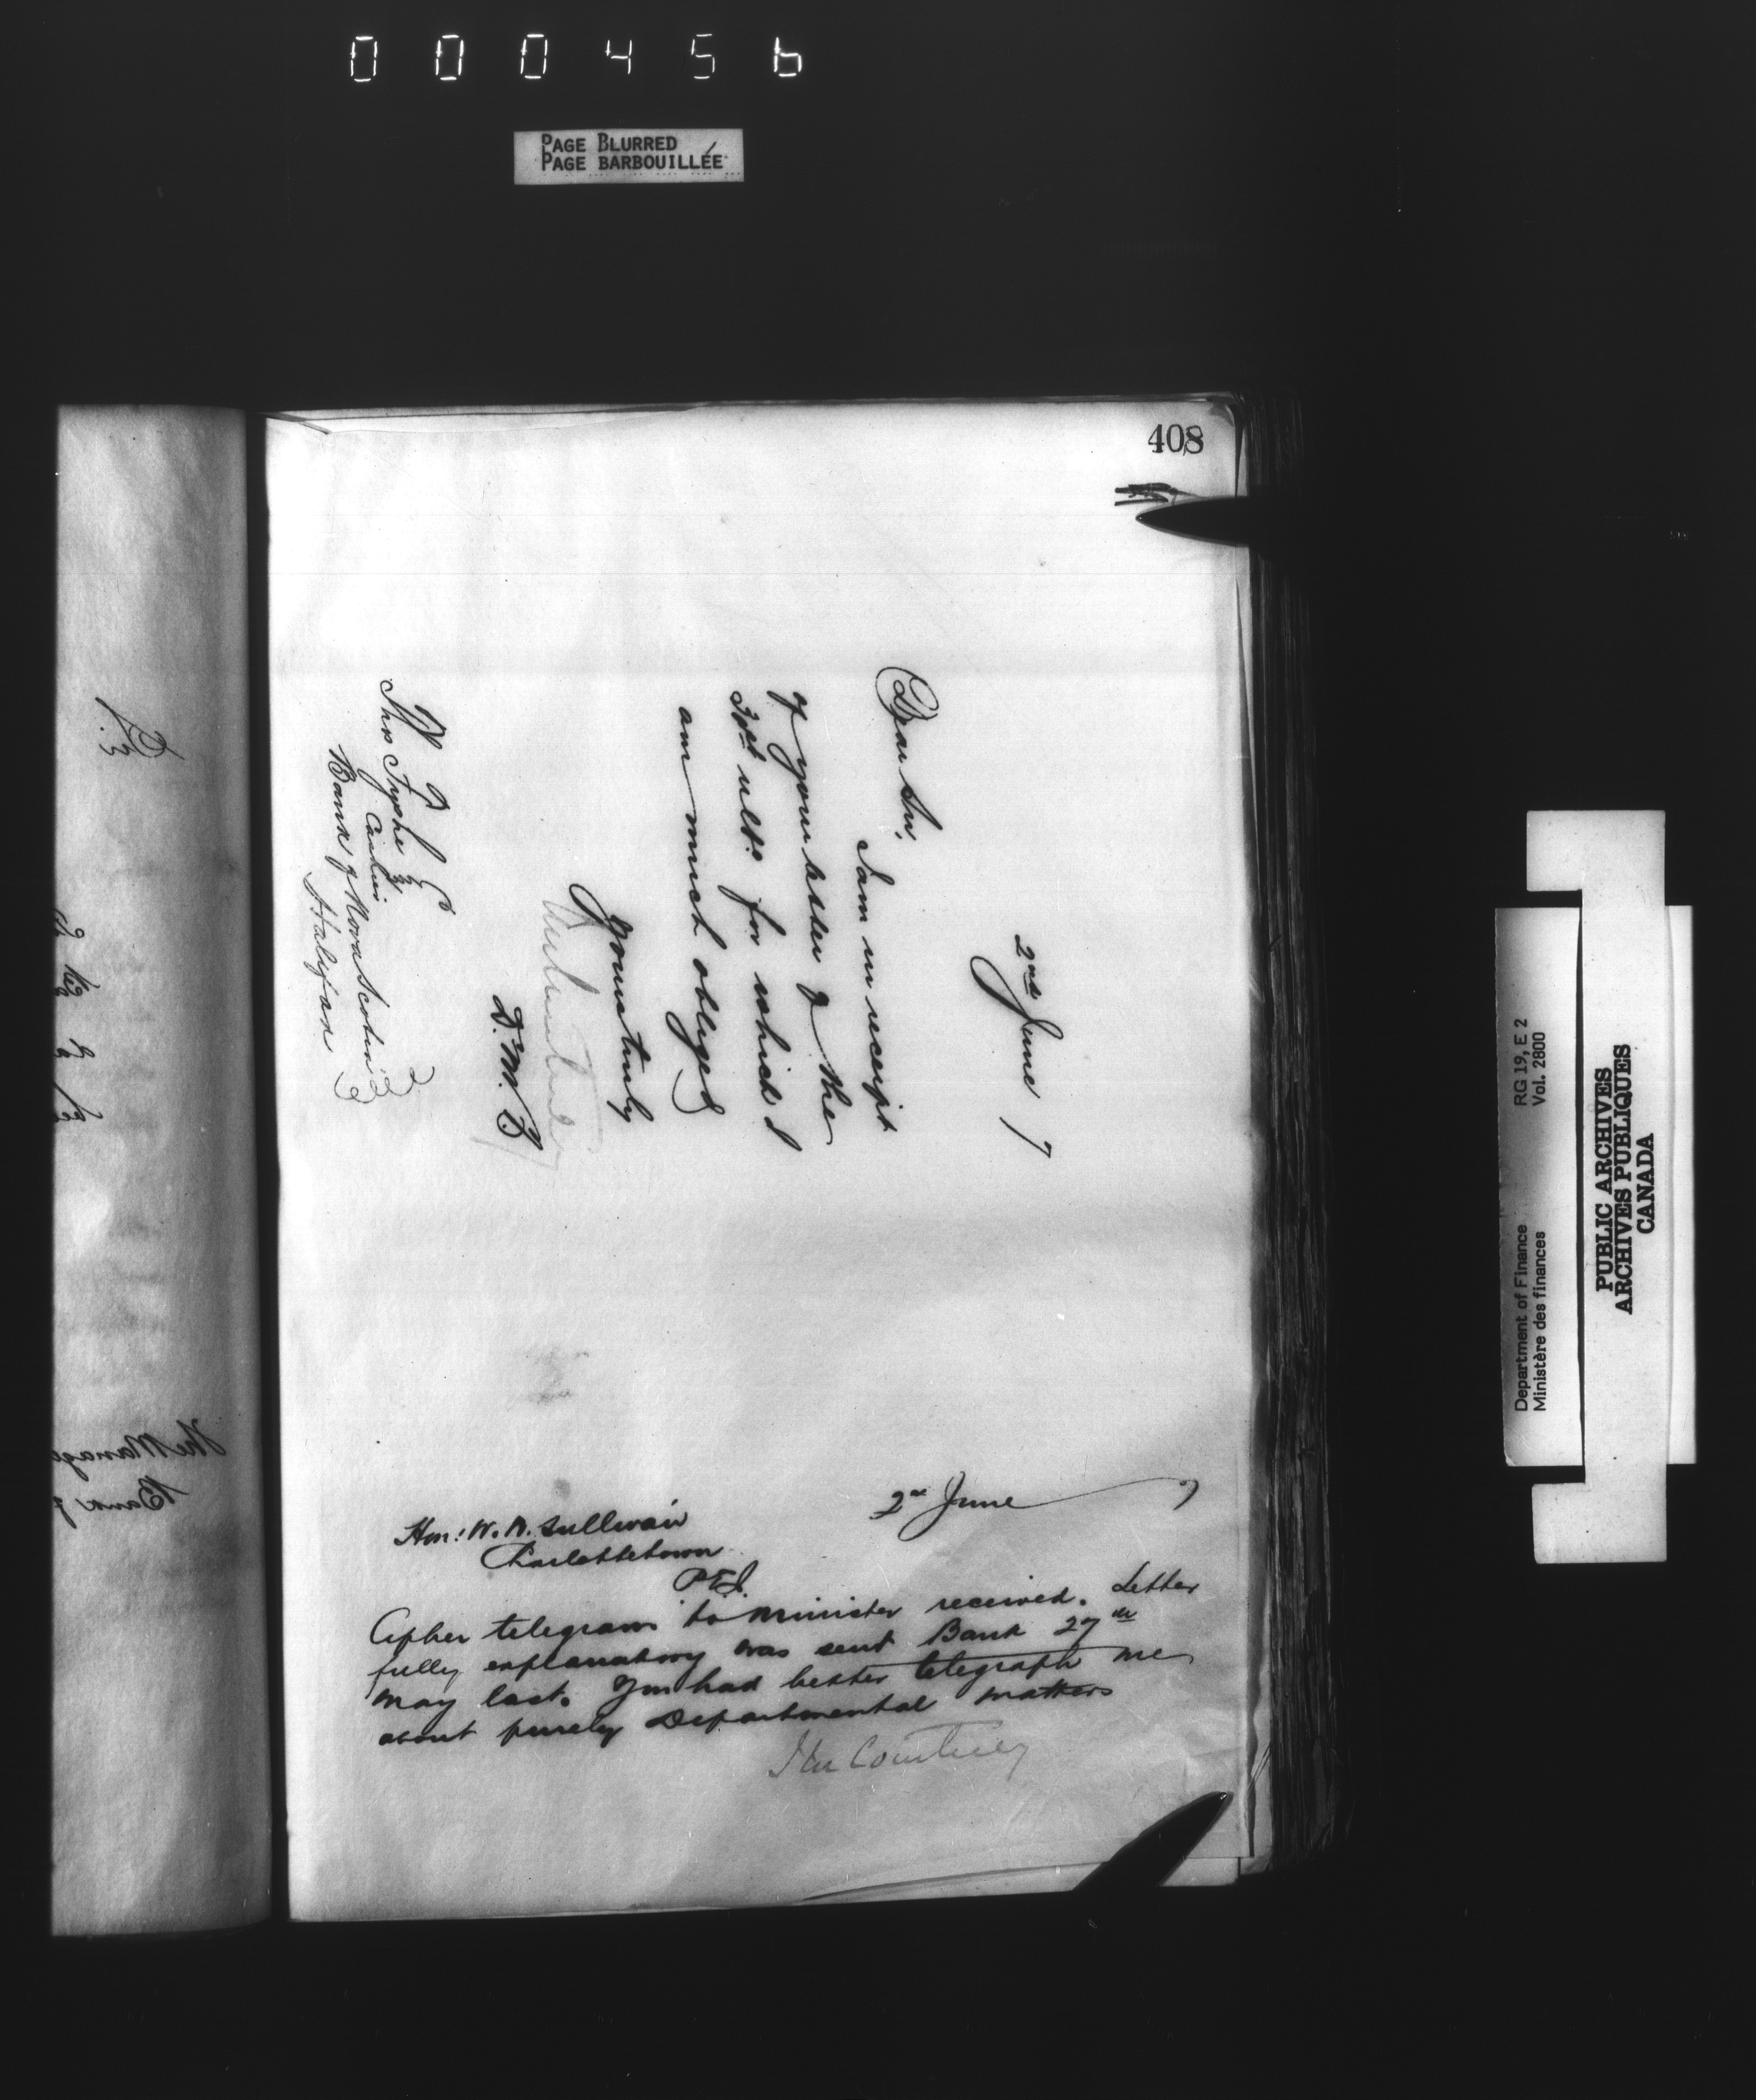 000456
PAGE BLURRED
PAGE BARBOUILLÉE
408
2nd June 7
Dear Sir,
I am in receipt
of your letter of the
30th ulto. for which I
am much obliged
Yours truly
D.M.F.
Thos Fyshe Esq
Cashier
Bank of Nova Scotia
Halifax
2nd June 7
Hon: W. W. Sullivan
Charlottetown
P E I.
Cipher telegram to Minister received. Letter
fully explanatory was sent Bank 27th
May last. You had better telegraph me
about purely Departmental matters
J M Courtney
The Manage
Bank of
RG 19, E 2
Vol. 2800
Department of Finance
Ministère des finances
PUBLIC ARCHIVES
ARCHIVES PUBLIQUES
CANADA